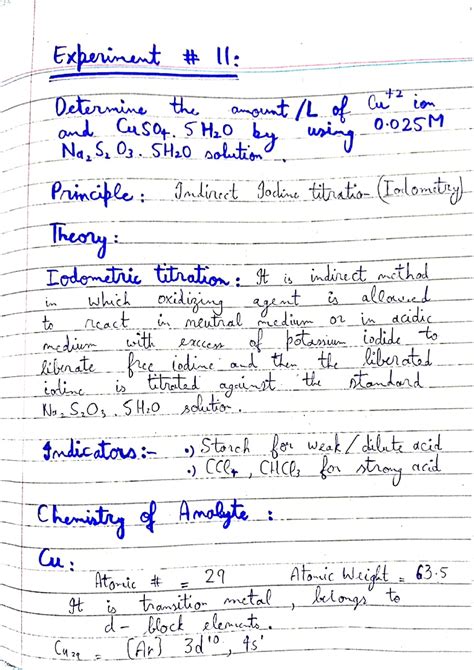 Experiment # 11:
Determine the amount/L of Cu+2 ion
and CuSO4. 5H2O by using 0.025M
Na2S2O3. 5H2O solution.
Principle: Indirect Iodine titration (Iodometry)
Theory:
Iodometric titration: It is indirect method
in which oxidizing agent is allowed
to react in neutral medium or in acidic
medium with excess of potassium iodide to
liberate free iodine and then the liberated
iodine is titrated against the standard
Na2S2O3. 5H2O solution.
Indicators:- •) Starch for weak/dilute acid
•) CCl4, CHCl3 for strong acid
Chemistry of Analyte :
Cu:
Atomic # = 29 Atomic Weight = 63.5
It is transition metal, belongs to
d-block elements.
Cu29 = [Ar] 3d10, 4s1